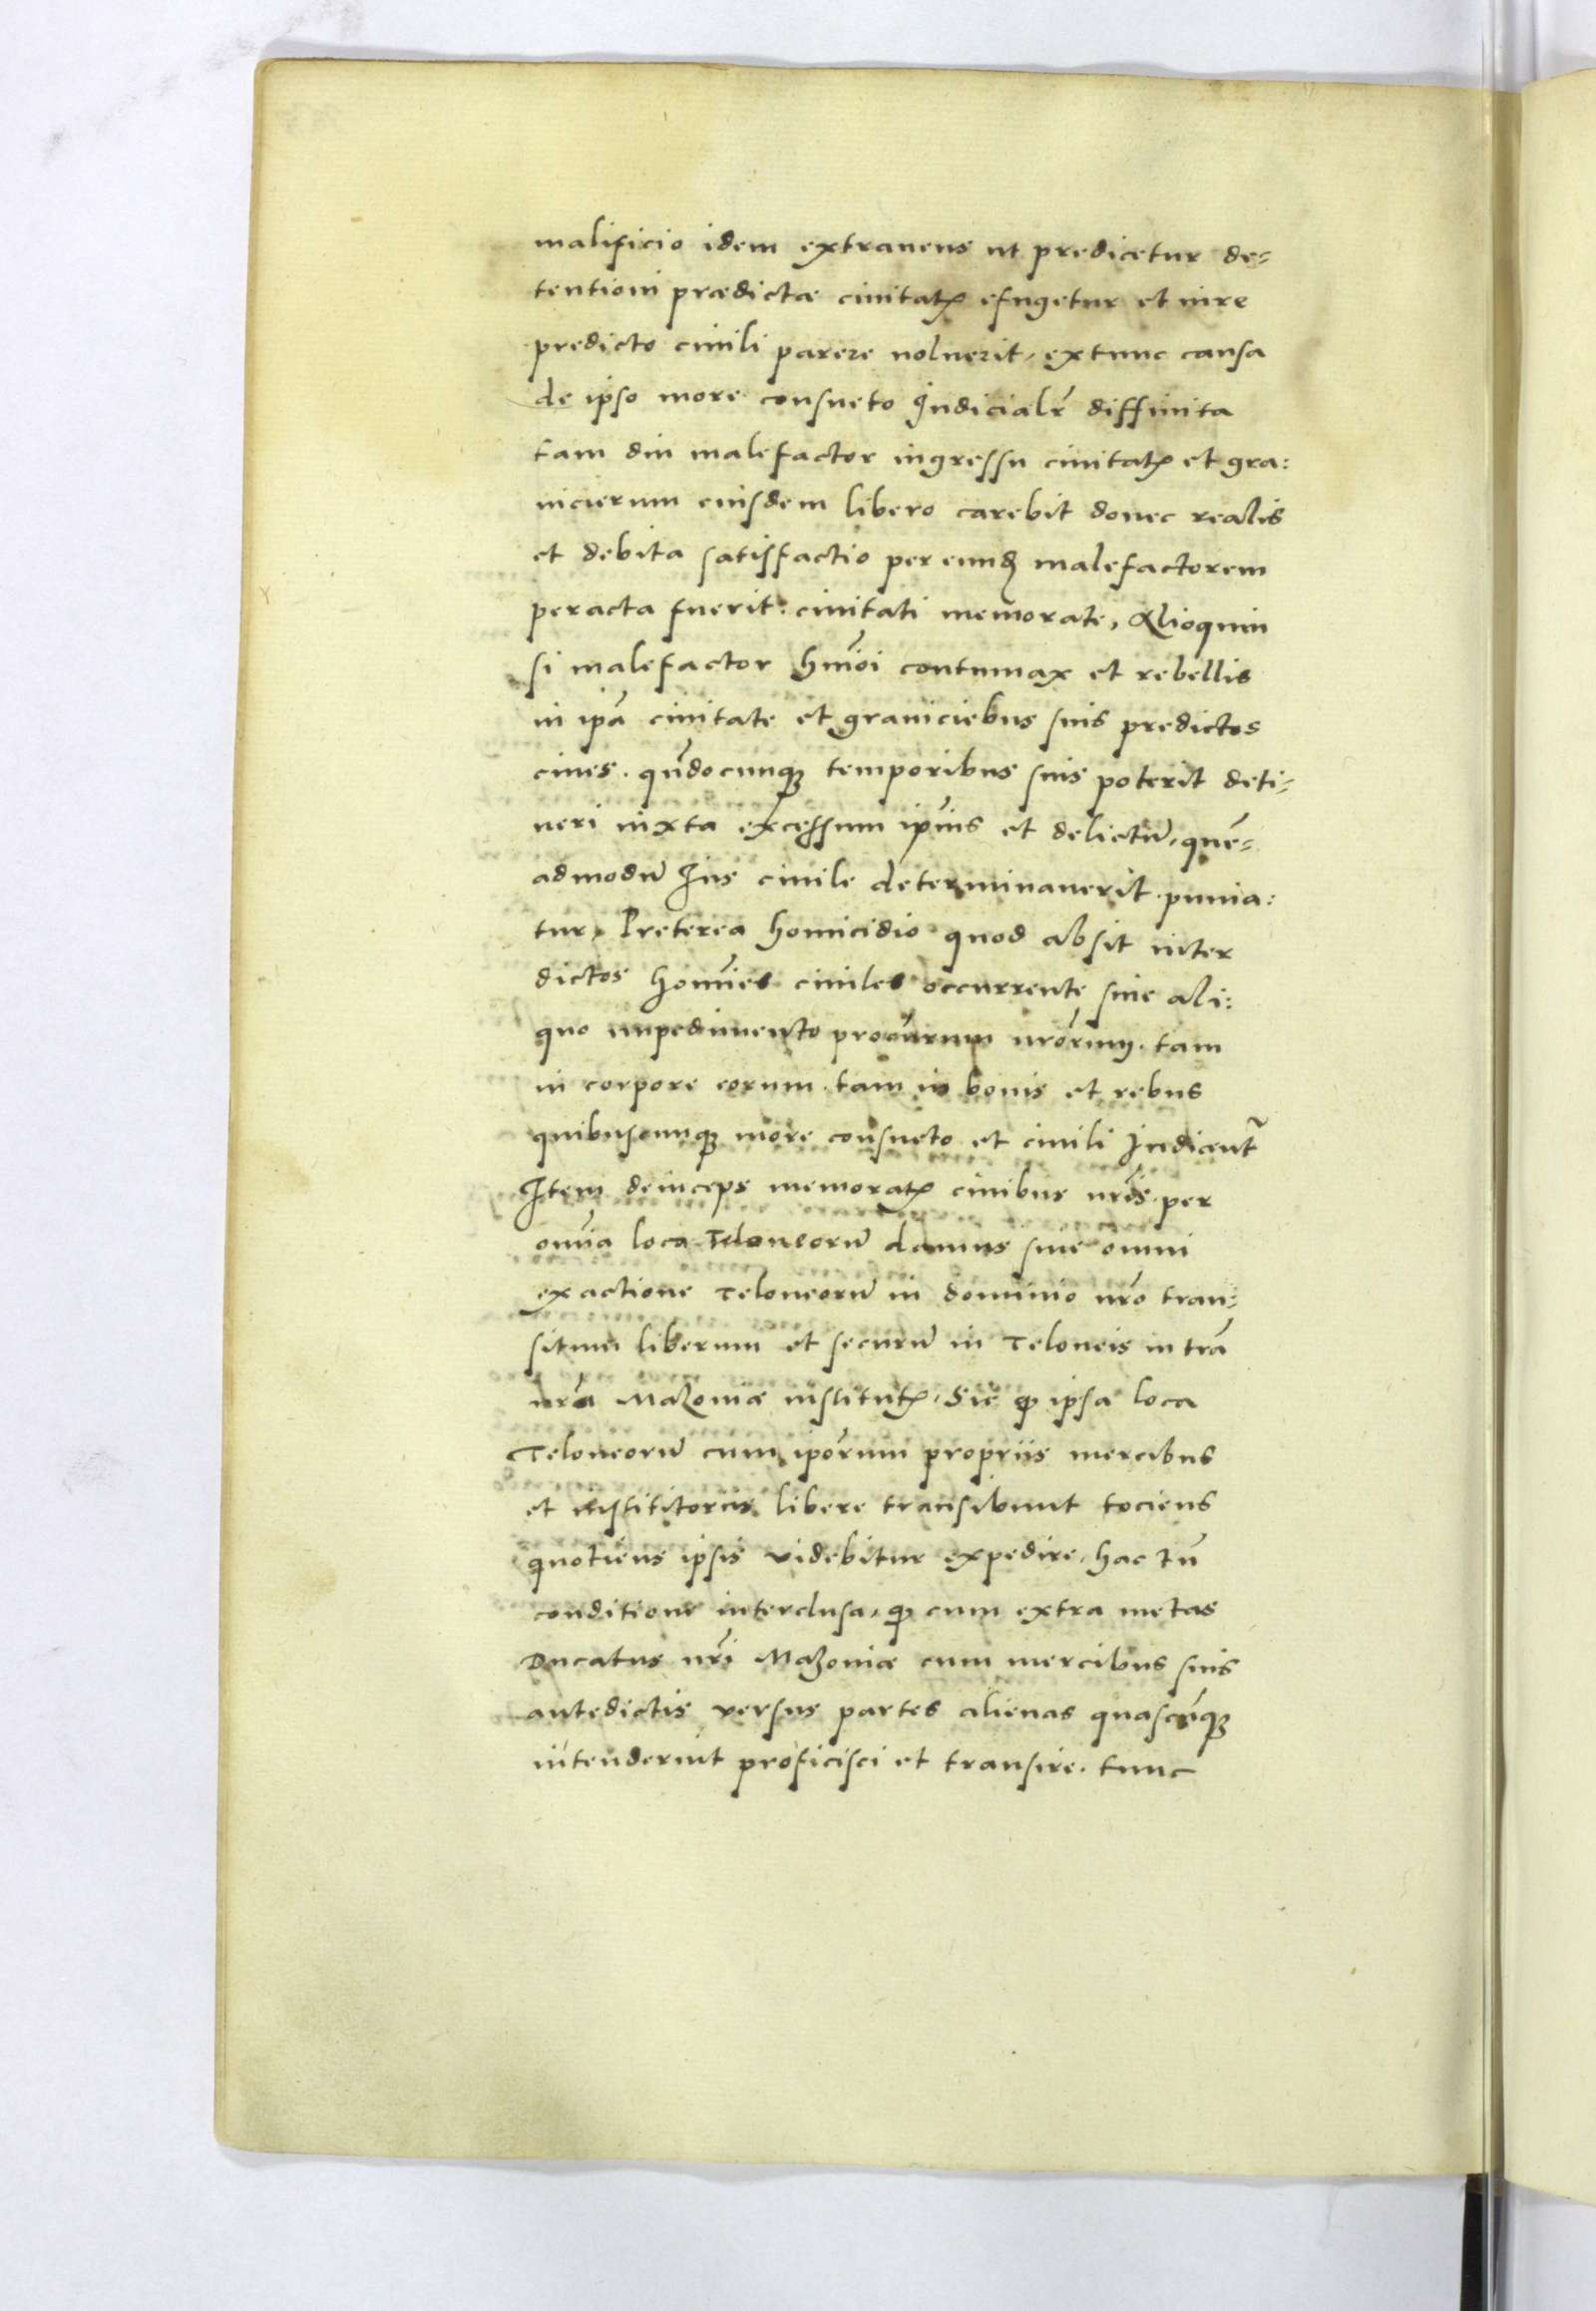 malificio idem extraneus ut predicetur de-
tentioni prædictæ ciuitatꝭ efugetur et iure
predicto ciuili parere noluerit, extunc causa
de ipso more consueto Iudicialr̃ diffinita
tam diu malefactor ingressu ciuitatꝭ et gra:
nicierum eiusdem libero carebit donec realis
et debita satisfactio per eundꝫ malefactorem
peracta fuerit. ciuitati memorate, Alioquin
si malefactor hm̄oi contumax et rebellis
in ipã ciuitate et graniciebus suis predictos
ciues. qñdocunqꝫ temporibus suis poterit deti-
neri iuxta excessum ip̄ius et delictũ, quẽ-
admodũ Ius ciuile determinauerit. punia:
tur, Preterea homicidio quod absit inter
dictos homĩes ciuiles occurrente sine ali:
quo impedimento procũrum nrõrum. tam
in corpore eorum. tam in bonis et rebus
quibuscunqꝫ more consueto et ciuili Iudicent̃
Item deinceps memoratꝭ ciuibus nrĩs. per
omĩa loca Teloneorũ damus sine omni
exactione Teloneorũ in dominio nrõ tran-
situm liberum et securũ in Teloneis in trã
nrã Mazouiæ institutꝭ, Sic ꝙ ipsa loca
Teloneorũ cum ipõrum propriis mercibus
et institoriis libere transibunt tociens
quotiens ipsis videbitur expedire, hac tñ
conditione interclusa, ꝙ cum extra metas
Ducatus nrĩ Mazouiæ cum mercibus suis
antedictis versus partes alienas quascũqꝫ
intenderint proficisci et transire. tunc